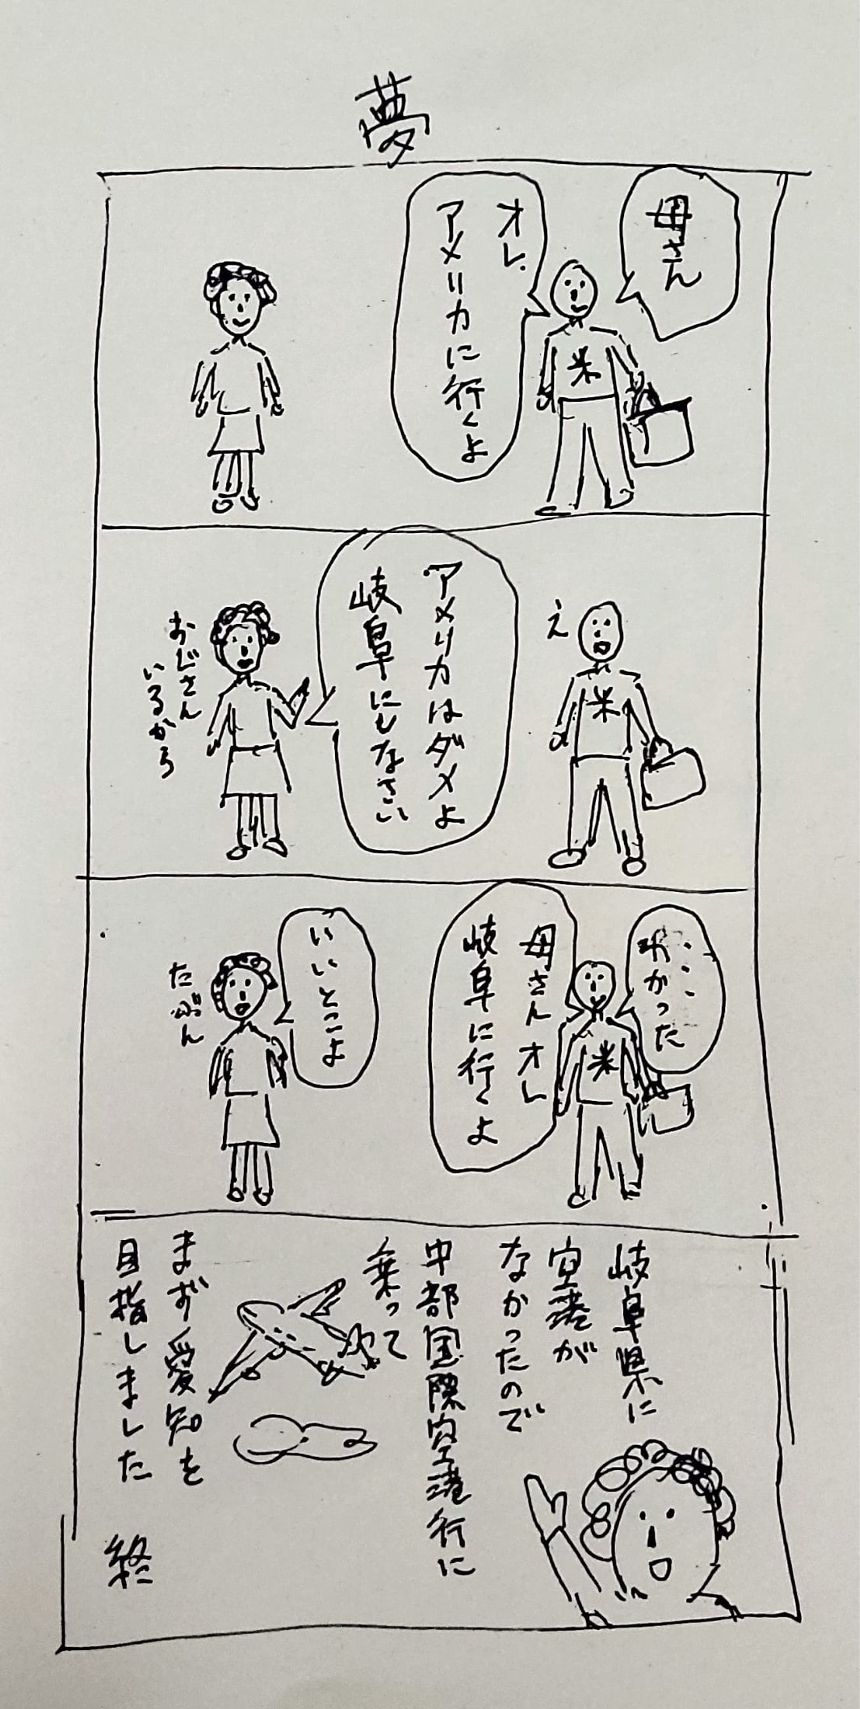 夢
母さん
オレ、
アメリカに行くよ
米
アメリカはダメよ
岐阜にしなさい
え
米
おじさん
いるから
・・・
わかった
母さんオレ
岐阜に行くよ
米
いいとこよ
たぶん
岐阜県に
空港が
なかったので
中部国際空港行に
乗って
まず愛知を
目指しました
終